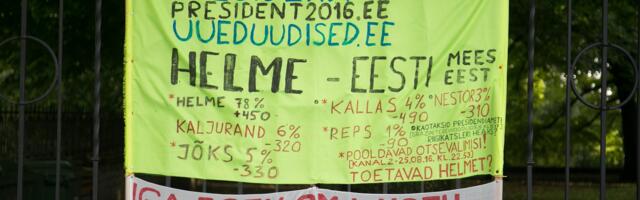 PRESIDENT2016.EE
UUEDUUDISED.EE
HELME - EESTI MEES EEST
*HELME 78%
+450
KALJURAND 6%
-320
*JÕKS 5%
-330
°*KALLAS 4% °NESTOR 3%
-490 -310
*REPS 1%
-90
°KAOTAKSID PRESIDENDIAMETI
RIIGIKATSLERI HEAKS!
*POOLDAVAD OTSEVALIMISI!
[KANAL 2-25.08.16, KL.22.53]
TOETAVAD HELMET?